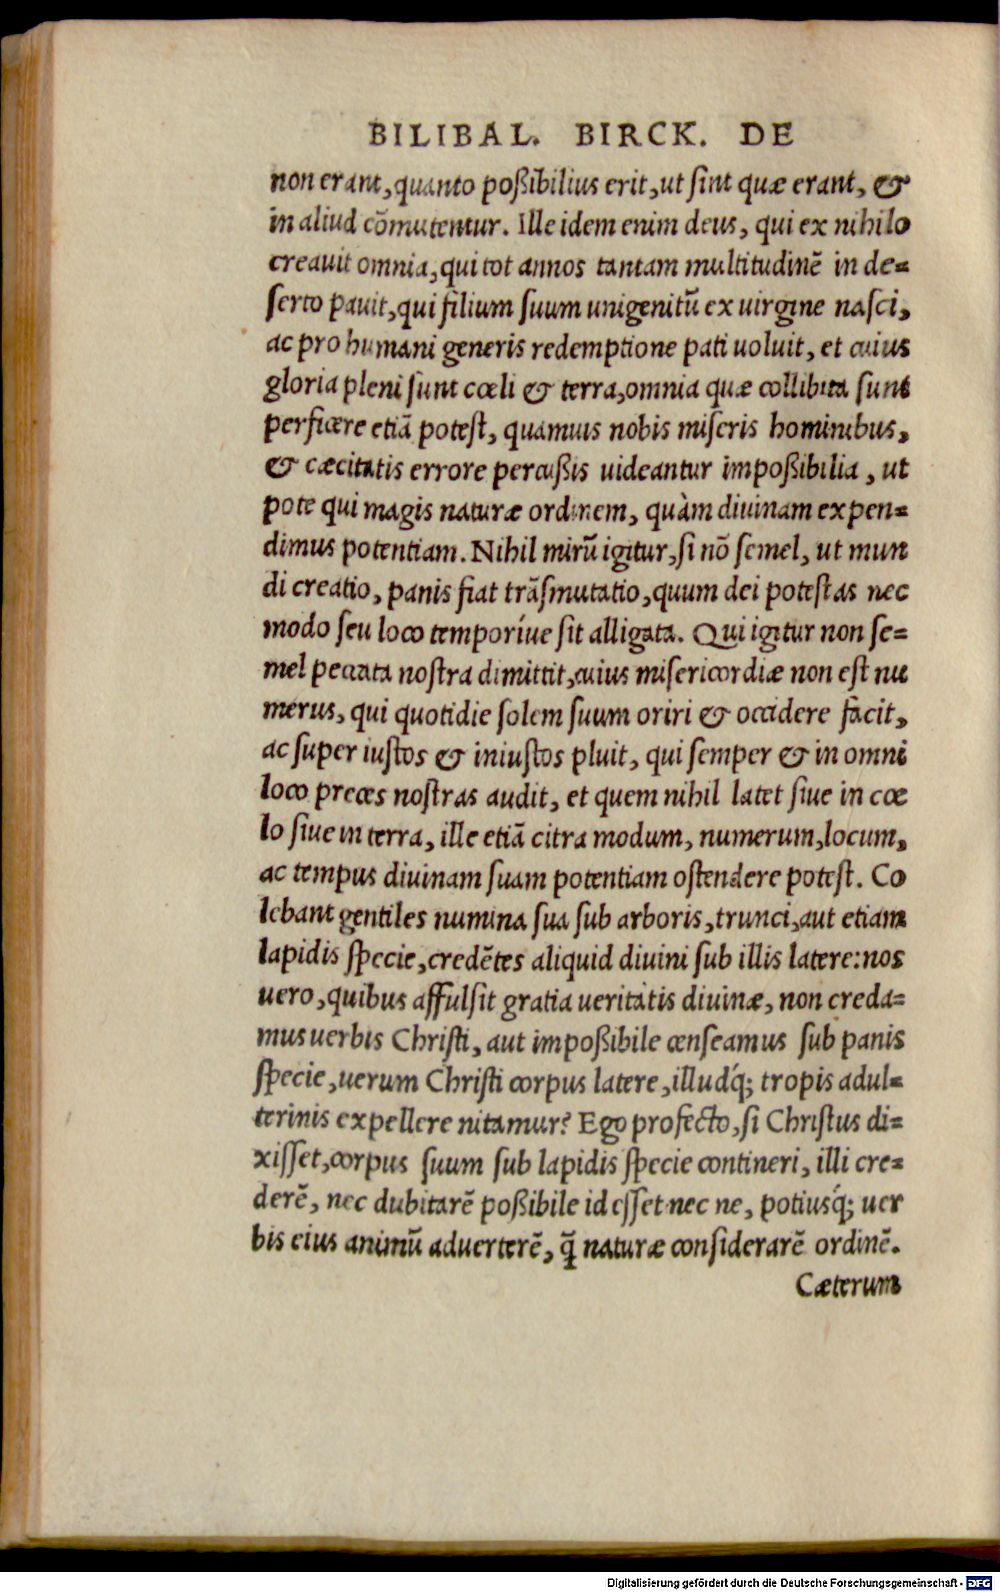 BILIBAL. BIRCK. DE
non erant, quanto poßibilius erit, ut ſint quæ erant, &
in aliud cõmutentur. Ille idem enim deus, qui ex nihilo
creauit omnia, qui tot annos tantam multitudinẽ in de=
ſerto pauit, qui filium ſuum unigenitũ ex uirgine naſci,
ac pro humani generis redemptione pati uoluit, et cuius
gloria pleni ſunt cœli & terra, omnia quæ collibita ſunt
perficere etiã poteſt, quamuis nobis miſeris hominibus,
& cæcitatis errore percußis uideantur impoßibilia, ut
pote qui magis naturæ ordinem, quàm diuinam expen=
dimus potentiam. Nihil mirũ igitur, ſi nõ ſemel, ut mun
di creatio, panis fiat trãſmutatio, quum dei poteſtas nec
modo ſeu loco temporíue ſit alligata. Qui igitur non ſe=
mel peccata noſtra dimittit, cuius miſericordiæ non eſt nu
merus, qui quotidie ſolem ſuum oriri & occidere facit,
ac ſuper iuſtos & iniuſtos pluit, qui ſemper & in omni
loco preces noſtras audit, et quem nihil latet ſiue in cœ
lo ſiue in terra, ille etiã citra modum, numerum, locum,
ac tempus diuinam ſuam potentiam oſtendere poteſt. Co
lebant gentiles numina ſua ſub arboris, trunci, aut etiam
lapidis ſpecie, credẽtes aliquid diuini ſub illis latere: nos
uero, quibus affulſit gratia ueritatis diuinæ, non creda=
mus uerbis Chriſti, aut impoßibile cenſeamus ſub panis
ſpecie, uerum Chriſti corpus latere, illudq́; tropis adul=
terinis expellere nitamur? Ego profecto, ſi Chriſtus di=
xiſſet, corpus ſuum ſub lapidis ſpecie contineri, illi cre=
derẽ, nec dubitarẽ poßibile id eſſet nec ne, potiusq́; uer
bis eius animũ aduerterẽ, q̃ naturæ conſiderarẽ ordinẽ.
Cæterum
Digitalisierung gefördert durch die Deutsche Forschungsgemeinschaft - DFG